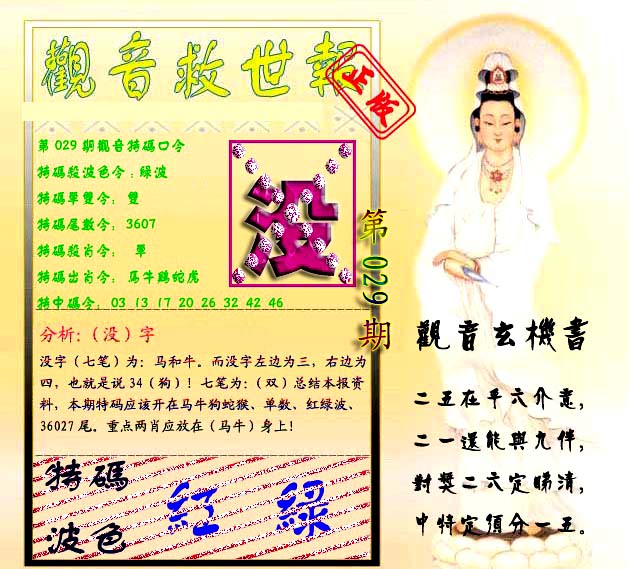 觀音救世報
正版
第029期觀音特碼口令
特碼殺波色令:綠波
特碼單雙令: 雙
特碼尾數令: 3607
特碼殺肖令: 單
特碼出肖令: 馬牛鷄蛇虎
特中碼令: 03 13 17 20 26 32 42 46
没
第029期
分析:(没)字
没字(七笔)为:马和牛。而没字左边为三,右边为
四,也就是说34(狗)!七笔为:(双)总结本报资
料,本期特码应该开在马牛狗蛇猴、单数、红绿波、
36027尾。重点两肖应放在(马牛)身上!
特碼
波色
紅 綠
觀音玄機書
二五在平六介意,
二一還能與九伴,
對獎二六定睇清,
中特定須分一五。